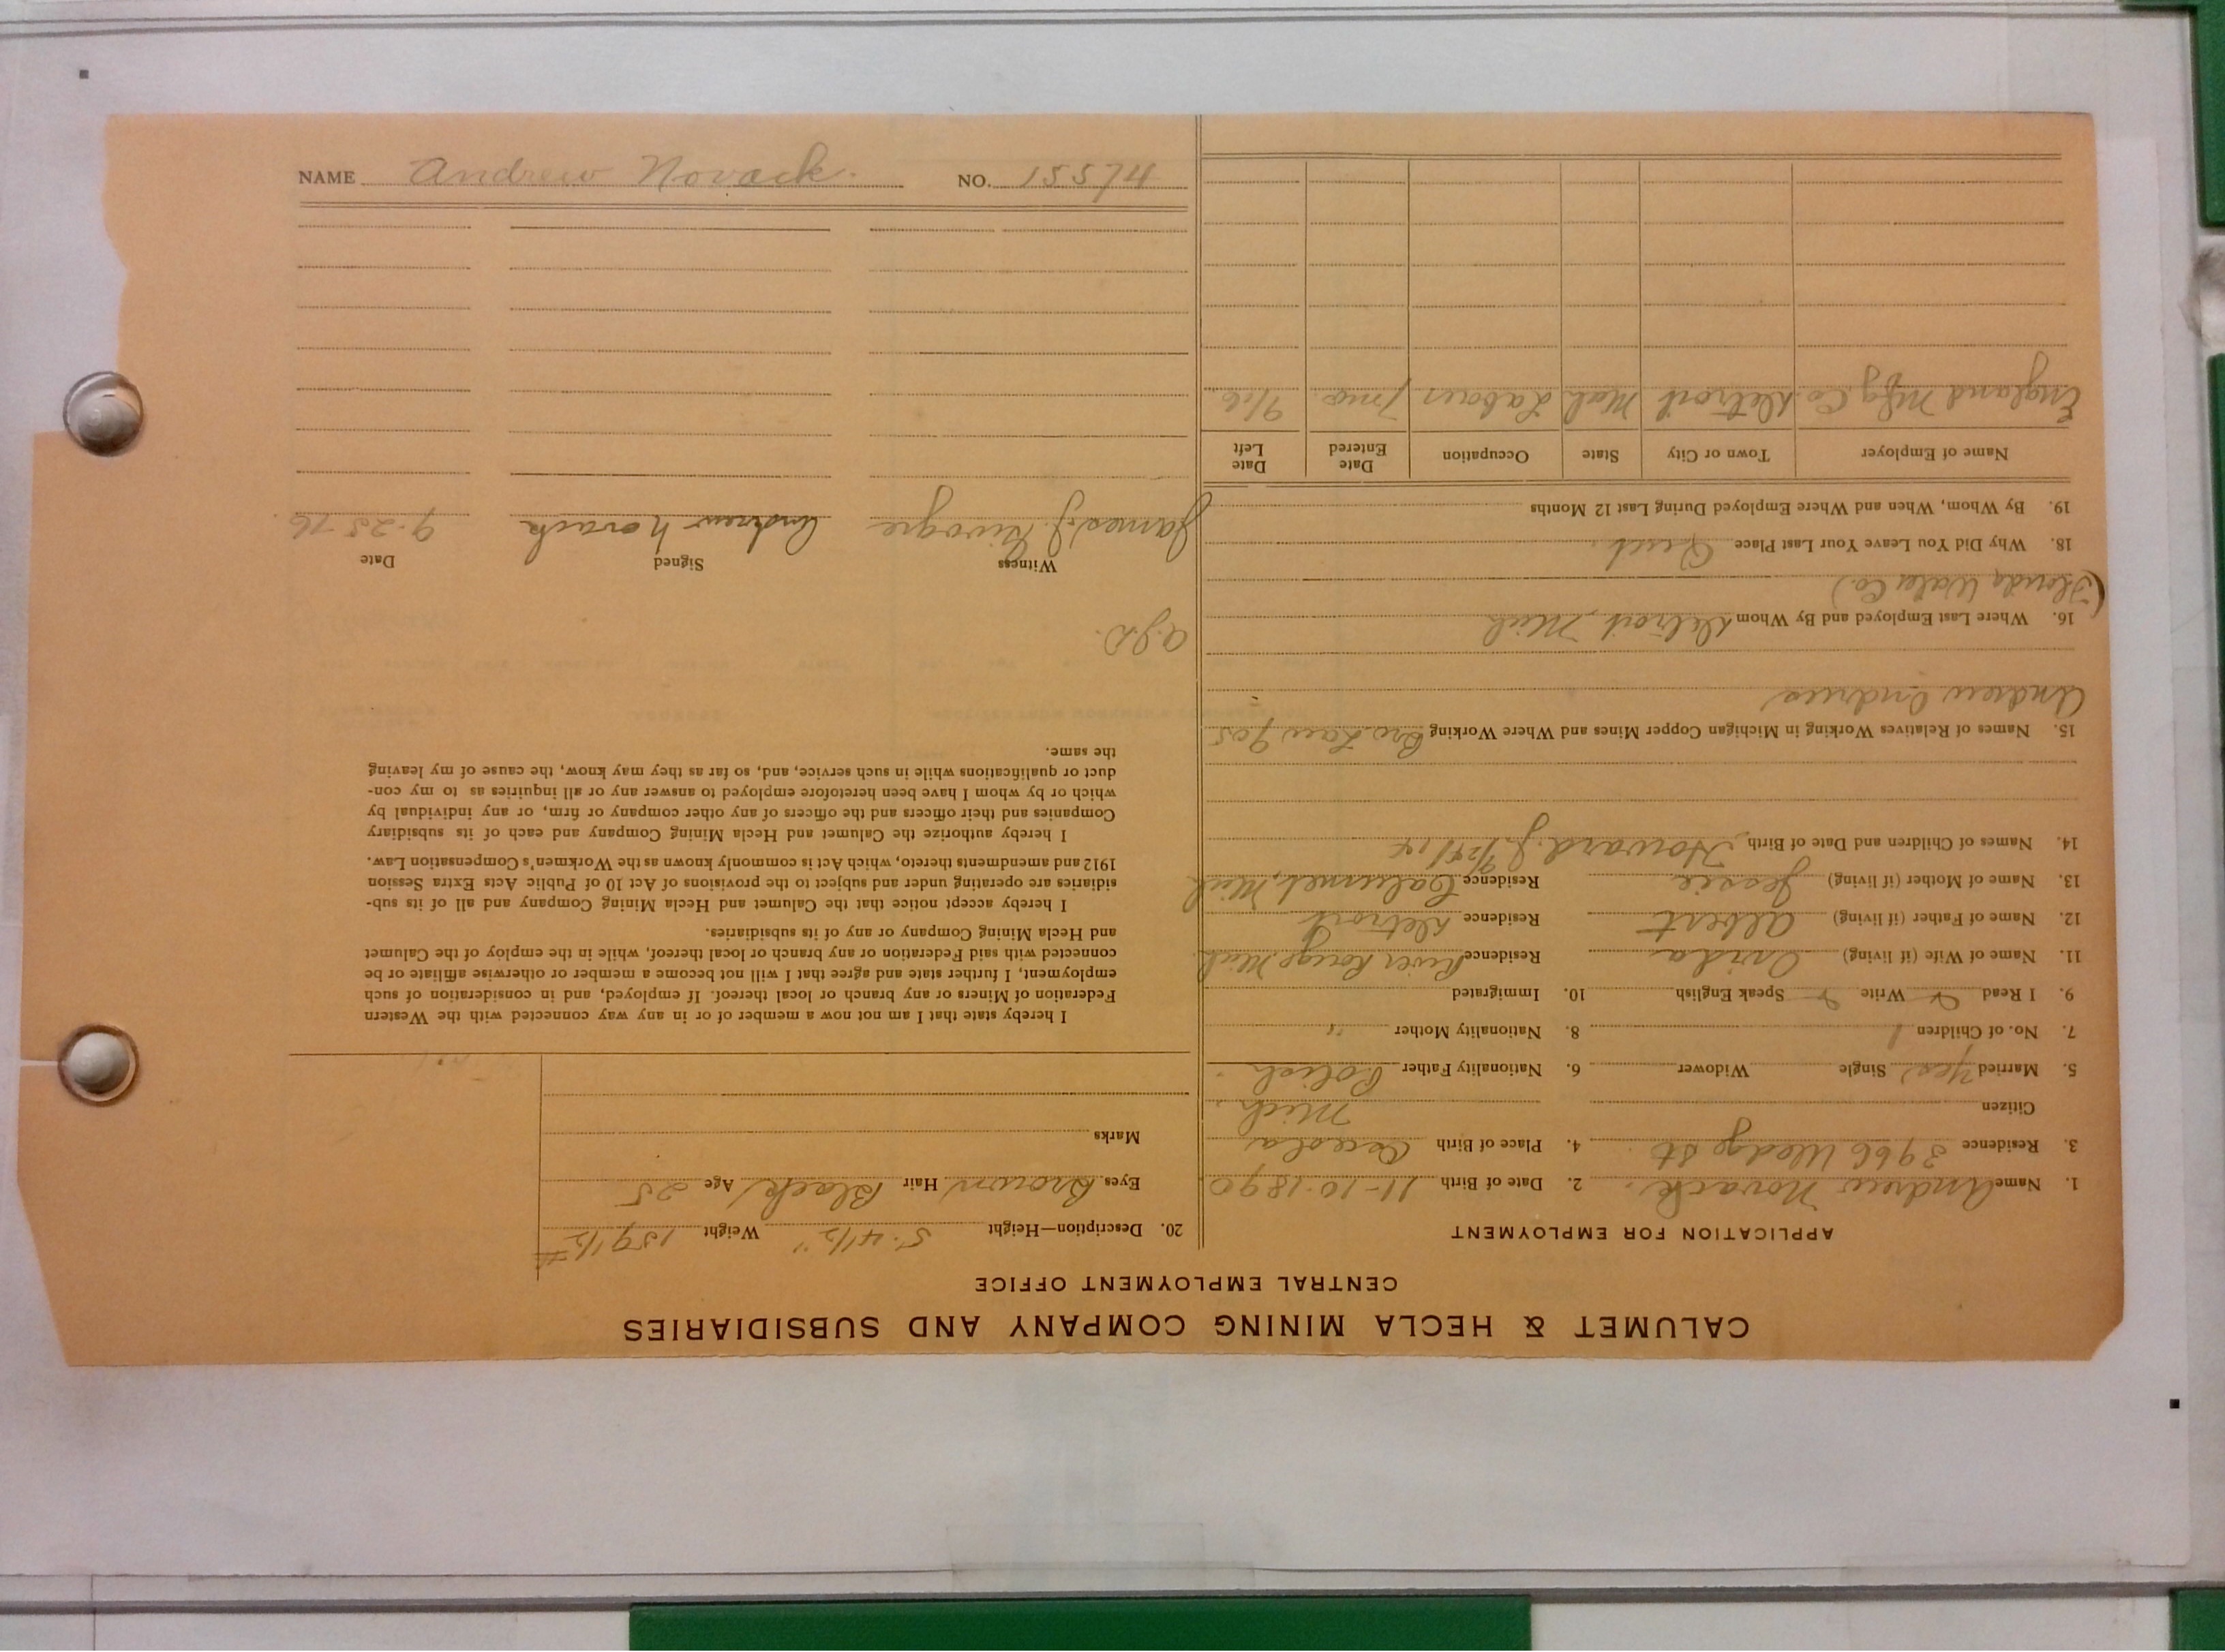 CALUMET & HECLA MINING COMPANY AND SUBSIDIARIES
CENTRAL EMPLOYMENT OFFICE
APPLICATION FOR EMPLOYMENT
1. Name Andrew Novack. 2. Date of Birth 11-10-1890
3. Residence 3966 St. 4. Place of Birth Osceola
Citizen Mich.
5. Married Yes Single Widower 6. Nationality Father Polish.
7. No. of Children 1 8. Nationality Mother "
9. I Read Write Speak English 10. Immigrated
11. Name of Wife (if living) Residence River Rouge Mich.
12. Name of Father (if living) Albert Residence Detroit
13. Name of Mother (if living) Jessie Residence Calumet, Mich
14. Names of Children and Date of Birth Howard J.
15. Names of Relatives Working in Michigan Copper Mines and Where Working Bro Law 905
Andrew
16. Where Last Employed and By Whom Detroit, Mich
18. Why Did You Leave Your Last Place Quit.
19. By Whom, When and Where Employed During Last 12 Months
Name of Employer Town or City State Occupation Date Entered Date Left
England Mfg Co. Detroit Mich Laborer 7 mos. 9/16.
20. Description—Height 5' 4 1/2" Weight 159 1/2 #
Eyes Brown Hair Black Age 25
Marks
I hereby state that I am not now a member of or in any way connected with the Western
Federation of Miners or any branch or local thereof. If employed, and in consideration of such
employment, I further state and agree that I will not become a member or otherwise affiliate or be
connected with said Federation or any branch or local thereof, while in the employ of the Calumet
and Hecla Mining Company or any of its subsidiaries.
I hereby accept notice that the Calumet and Hecla Mining Company and all of its sub-
sidiaries are operating under and subject to the provisions of Act 10 of Public Acts Extra Session
1912 and amendments thereto, which Act is commonly known as the Workmen's Compensation Law.
I hereby authorize the Calumet and Hecla Mining Company and each of its subsidiary
Companies and their officers and the officers of any other company or firm, or any individual by
which or by whom I have been heretofore employed to answer any or all inquiries as to my con-
duct or qualifications while in such service, and, so far as they may know, the cause of my leaving
the same.
Witness Signed Date
James J. Andrew Novack 9-25-16.
NAME Andrew Novack. NO. 15574